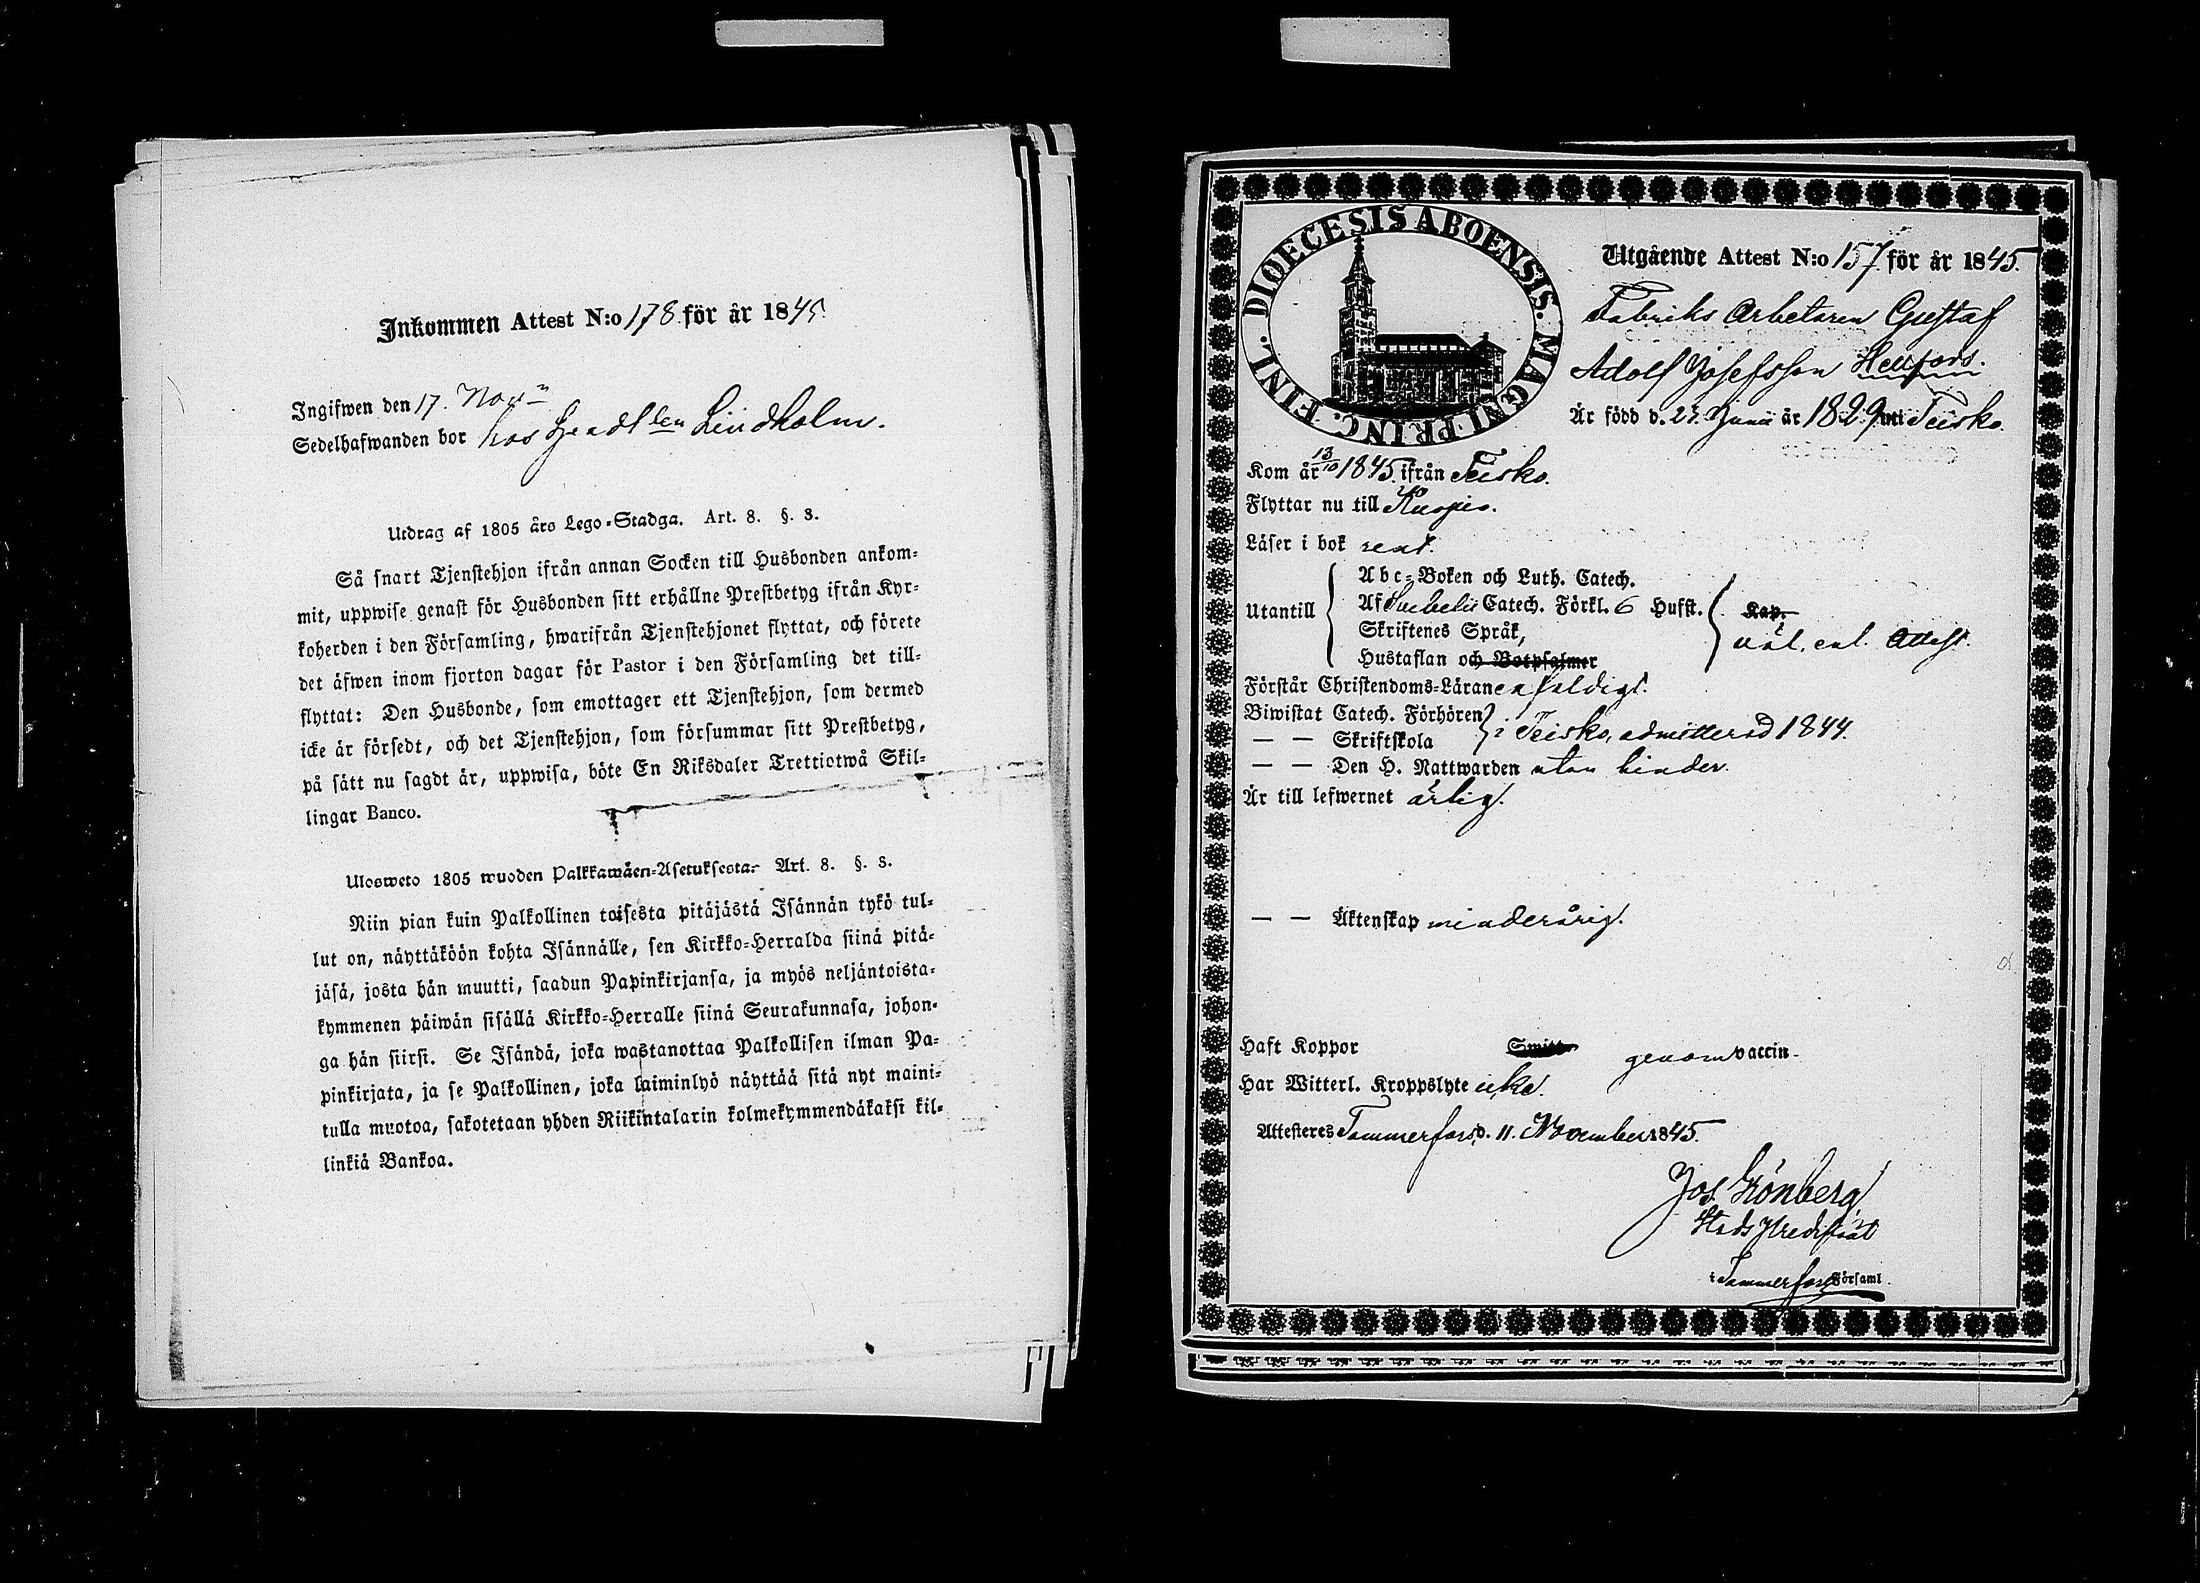 Inkommen Attest N:o 178 för år 1845
Ingifwen den 17. Nov:
Sedelhafwanden bor hos Lindholm.
Utdrag af 1805 års Lego-Stadga. Art. 8. §. 3.
Så snart Tjenstehjon ifrån annan Socken till Husbonden ankom-
mit, uppwise genast för Husbonden sitt erhållne Prestbetyg ifrån Kyr-
koherden i den Församling, hwarifrån Tjenstehjonet flyttat, och förete
det äfwen inom fjorton dagar för Pastor i den Församling det till-
flyttat: Den Husbonde, som emottager ett Tjenstehjon, som dermed
icke är försedt, och det Tjenstehjon, som försummar sitt Prestbetyg,
på sätt nu sagdt är, uppwisa, böte En Riksdaler Trettiotwå Skil-
lingar Banco.
Ulosweto 1805 wuoden Palkkawäen-Asetuksesta. Art. 8. §. 3.
Niin pian kuin Palkollinen toisesta pitäjästä Isännän tykö tul-
lut on, näyttäköön kohta Isännälle, sen Kirkko-Herralda siinä pitä-
jäsä, josta hän muutti, saadun Papinkirjansa, ja myös neljäntoista-
kymmenen päiwän sisällä Kirkko-Herralle siinä Seurakunnasa, johon-
ga hän siirsi. Se Isändä, joka wastanottaa Palkollisen ilman Pa-
pinkirjata, ja se Palkollinen, joka laiminlyö näyttää sitä nyt maini-
tulla muotoa, sakotetaan yhden Riikintalarin kolmekymmendäkaksi kil-
linkiä Bankoa.
DIOECESIS ABOENSIS. MAGNI PRINC. FINL.
Utgående Attest N:o 157 för år 1845.
Fabriks Arbetaren Gustaf
Adolf Josefsson Hellfors.
Är född d. 23. Junii år 1829 uti Teisko.
Kom år 13/10 1845. ifrån Teisko.
Flyttar nu till Kuopio.
Läser i bok rent.
Abc-Boken och Luth. Catech.
Utantill Af Svebelii Catech. Förkl. 6 Hufst. Kap.
Skriftenes Språk, väl, enl. Attest.
Hustaflan och Botpsalmer
Förstår Christendoms-Läran enfaldigt.
Biwistat Catech. Förhören
— — Skriftskola i Teisko, admitterad 1844.
— — Den H. Nattwarden utan hinder.
Är till lefwernet ärlig.
— — Äktenskap minderårig.
Haft Koppor Smitt genom vaccin.
Har Witterl. Kroppslyte icke.
Attesteres Tammerfors, d. 11. November 1845.
Jos. Grönberg
Stads Predikant
i Tammerfors Församl.